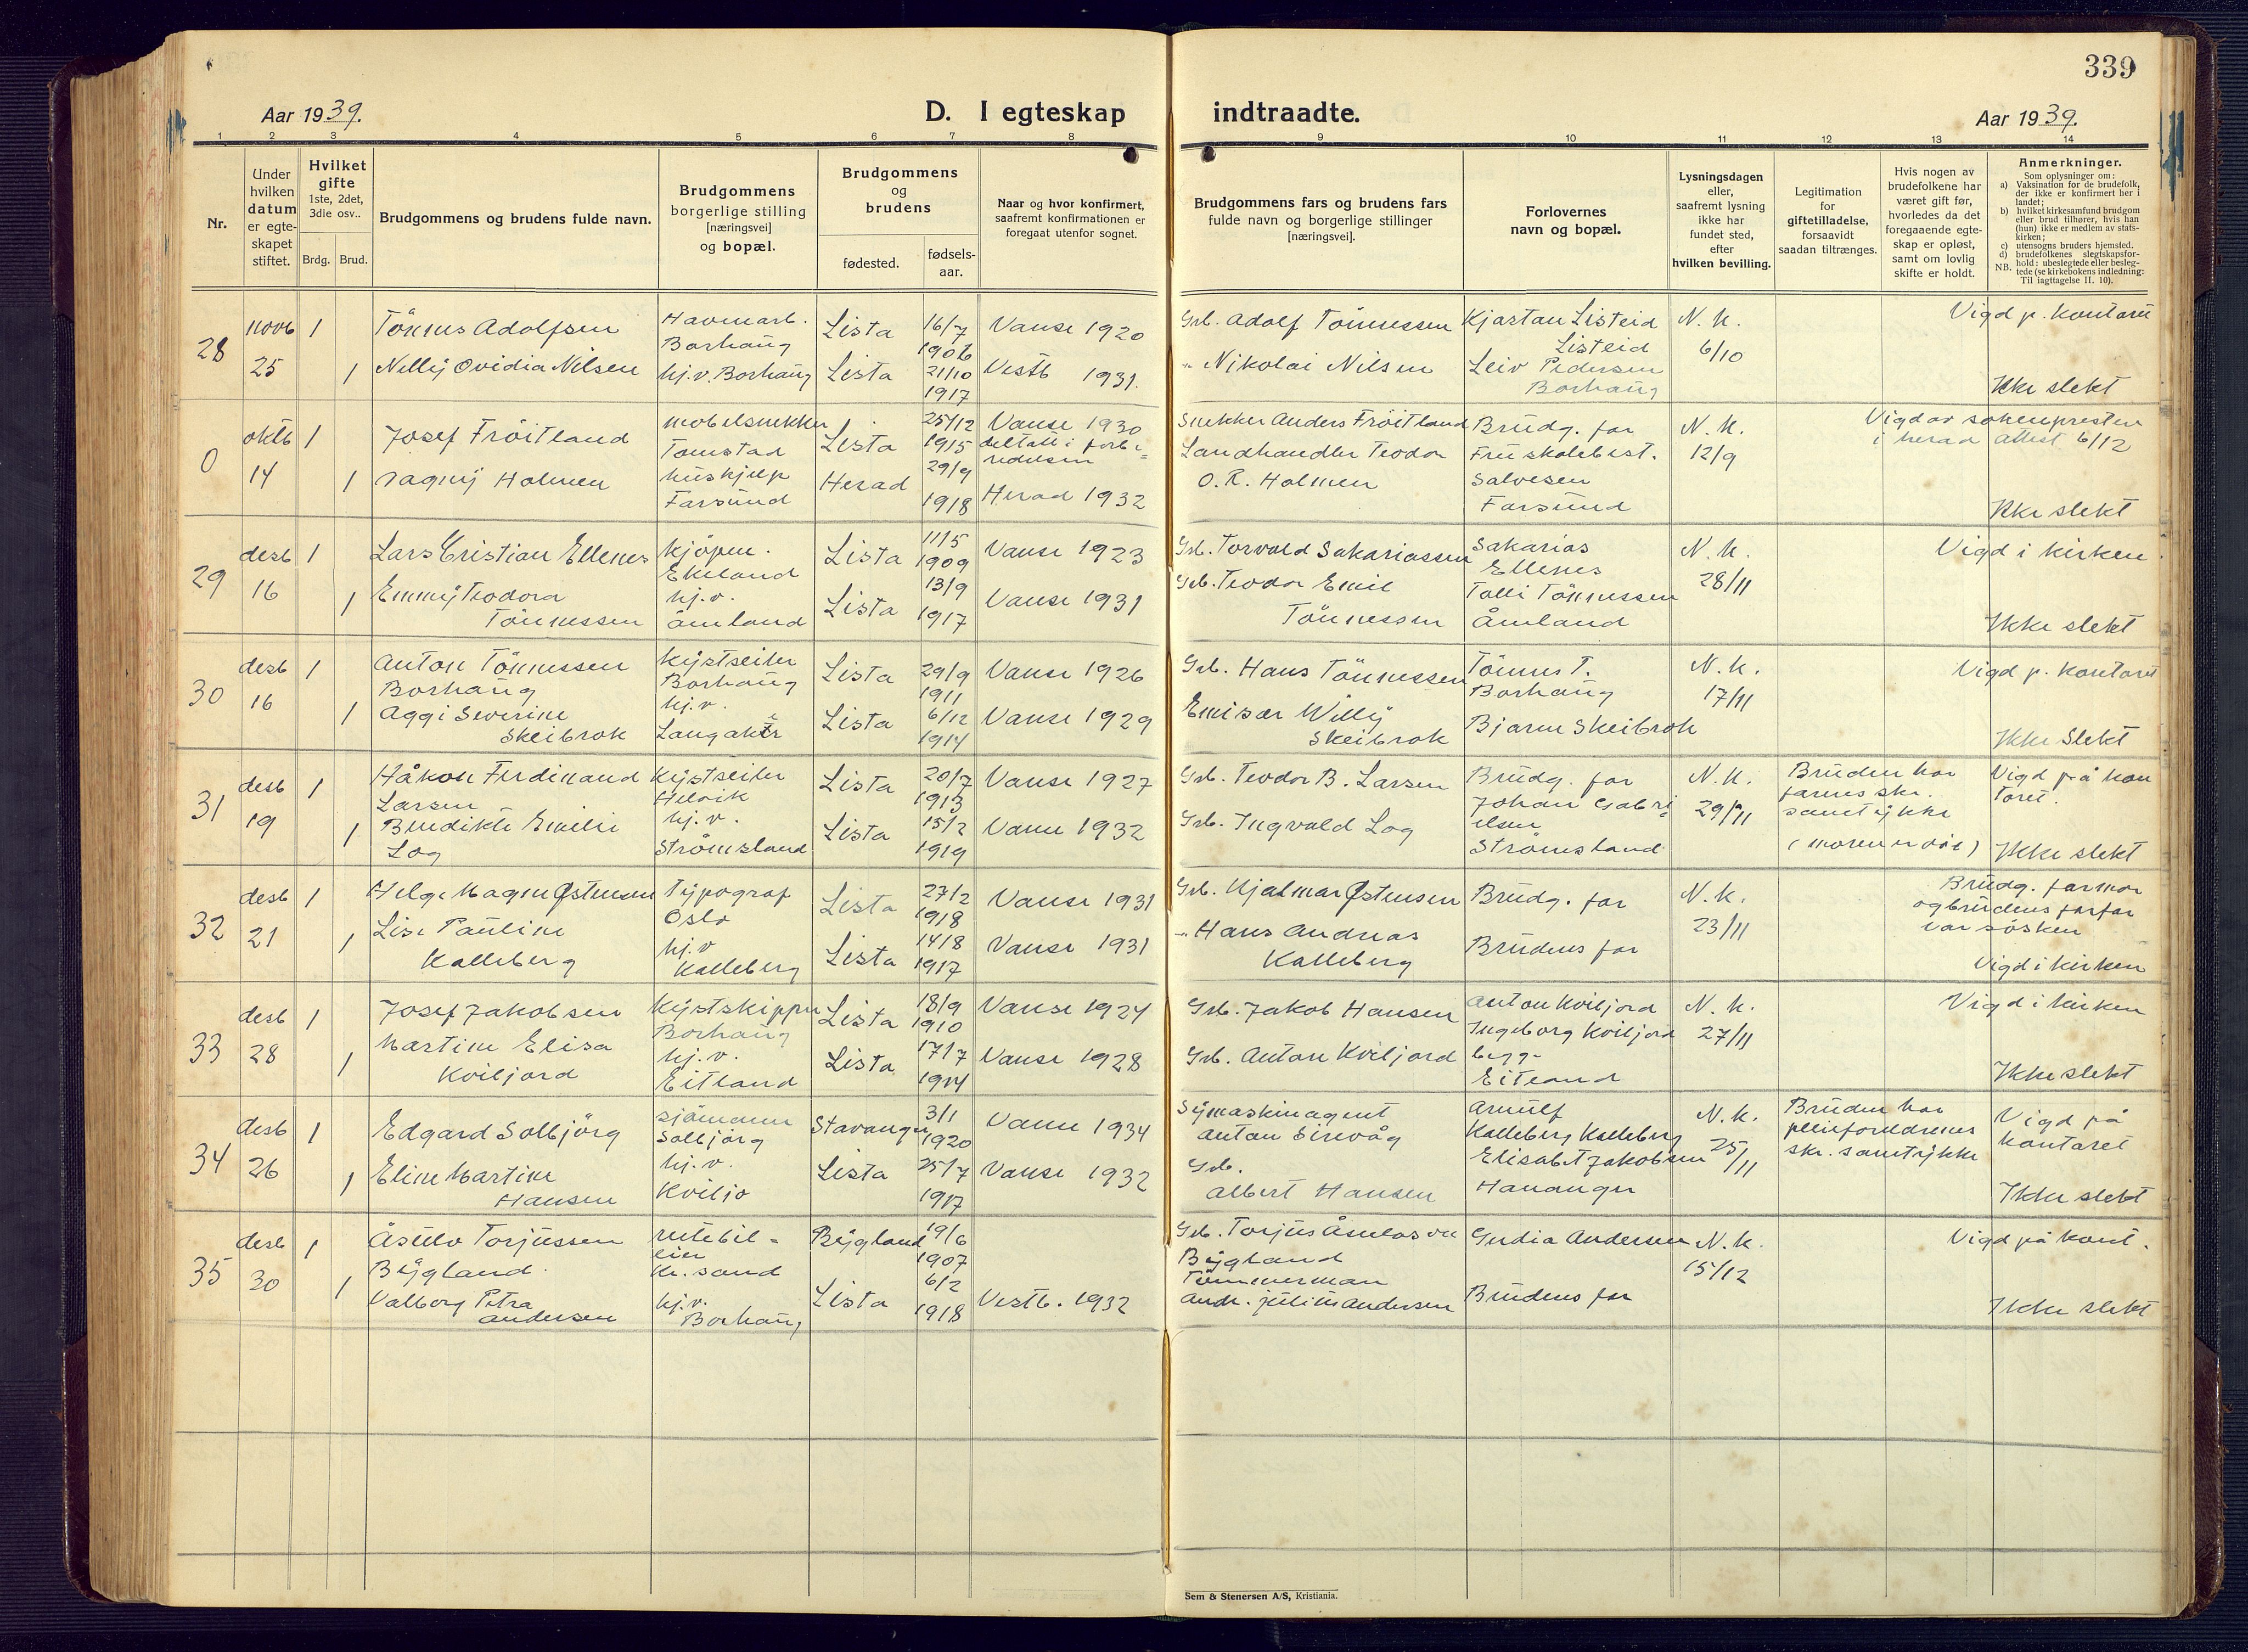 339
Aar 1939.
D. I egteskap indtraadte.
Aar 1939.
1 2 3 4 5 6 7 8 9 10 11 12 13 14
Nr.
Under hvilken datum er egteskapet stiftet.
Hvilket gifte
1ste, 2det, 3die osv..
Brdg. Brud.
Brudgommens og brudens fulde navn.
Brudgommens borgerlige stilling [næringsvei] og bopæl.
Brudgommens og brudens
fødested.
fødsels-aar.
Naar og hvor konfirmert, saafremt konfirmationen er foregaat utenfor sognet.
Brudgommens fars og brudens fars fulde navn og borgerlige stillinger [næringsvei].
Forlovernes navn og bopæl.
Lysningsdagen eller, saafremt lysning ikke har fundet sted, efter hvilken bevilling.
Legitimation for giftetilladelse, forsaavidt saadan tiltrænges.
Hvis nogen av brudefolkene har været gift før, hvorledes da det foregaaende egteskap er opløst, samt om lovlig skifte er holdt.
Anmerkninger.
Som oplysninger om:
a) Vaksination for de brudefolk, der ikke er konfirmert her i landet;
b) hvilket kirkesamfund brudgom eller brud tilhører, hvis han (hun) ikke er medlem av statskirken;
c) utensogns bruders hjemsted.
d) brudefolkenes slegtskapsforhold: ubeslegtede eller beslegtede (se kirkebokens indledning: Til iagttagelse II. 10).
NB.
28
novb 25
1
Tönnes Adolfsen
Havnarb. Borhaug
Lista
16/7 1906
Vanse 1920
Grb. Adolf Tönnessen
Kjartan Listeid Listeid
N. K. 6/10
Vigd p. kontoret
1
Nelly Ovidia Nilsen
hj. v. Borhaug
Lista
21/10 1917
Vestb 1931.
" Nikolai Nilsen
Leiv Pedersen Borhaug
Ikke slekt
0
oktb 14
1
Josef Fröitland
möbelsnekker Tomstad
Lista
25/12 1915
Vanse 1930
deltatt i forberedelsen
Snekker Anders Fröitland
Brudg. far
N. K. 12/9
Vigd av soknepresten i herad attest 6/12
1
Dagny Holmen
hushjelp Farsund
Herad
29/9 1918
Herad 1932
Landhandler Teodor O. R. Holmen
Fru skolebest. Salvesen Farsund
Ikke slekt
29
desb 16
1
Lars Cristian Ellenes
kjöpm. Ekeland
Lista
11/5 1909
Vanse 1923
Grb. Torvald Sakariassen
Sakarias Ellenes
N. K. 28/11
Vigd i kirken
1
Emmy Teodora Tönnessen
hj. v. Åmland
Lista
13/9 1917
Vanse 1931
Grb. Teodor Emil Tönnessen
Talli Tönnessen Åmland
Ikke slekt
30
desb 16
1
Anton Tönnessen Borhaug
Kystseiler Borhaug
Lista
29/9 1911
Vanse 1926
Grb. Hans Tönnessen
Tönnes T. Borhaug
N. K. 17/11
Vigd p. kontoret
1
Aggi Severine Skeibrok
hj. v. Langaker
Lista
6/12 1914
Vanse 1929
Emisær Willy Skeibrok
Bjarne Skeibrok
Ikke Slekt
31
desb 19
1
Håkon Ferdinand Larsen
Kystseiler Helvik
Lista
20/7 1913
Vanse 1927
Grb. Teodor B. Larsen
Brudg. far
N. K. 29/11
Bruden har farens skr. samtykke (moren er död)
Vigd på kontoret.
1
Benedikte Emilie Log
hj. v. Strømsland
Lista
15/2 1919
Vanse 1932
Grb. Ingvald Log
Johan Gabrielsen Strömsland
Ikke slekt
32
desb 21
1
Helge Magne Østensen
Typograf Oslo
Lista
27/2 1918
Vanse 1931
Grb. Hjalmar Østensen
Brudg. far
N. K. 23/11
Brudg. farmor og brudens farfar var søsken
1
Lise Pauline Kalleberg
hj. v Kalleberg
Lista
14/8 1917
Vanse 1931
" Hans Andreas Kalleberg
Brudens far
Vigd i kirken
33
desb 28
1
Josef Jakobsen
Kystskipper Borhaug
Lista
18/9 1910
Vanse 1924
Grb. Jakob Hansen
Anton Kviljord
N. K. 27/11
Vigd i kirken
1
Martine Elisa Kviljord
hj. v. Eitland
Lista
17/7 1914
Vanse 1928
Grb. Anton Kviljord
Ingeborg Kviljord begge Eitland
Ikke slekt
34
desb 26
1
Edgard Solbjörg
sjömann Solbjörg
Stavanger
3/1 1920
Vanse 1934
Symaskinagent Anton Sirevåg
Arnulf Kalleberg Kalleberg
N. K. 25/11
Bruden har pleieforeldrenes skr. samtykke
Vigd på kontoret
1
Eline Martine Hansen
hj. v. Kviljo
Lista
25/7 1917
Vanse 1932
Grb. Albert Hansen
Elisabet Jakobsen Hananger
Ikke slekt
35
desb 30
1
Åsulv Torjussen Bygland.
rutebileier Kr. sand
Bygland
19/6 1907
Grb. Torjus Åsulvson Bygland
Gudia Andersen
N. K. 15/12
Vigd på kont.
1
Valborg Petra Andersen
hj. v. Borhaug
Lista
6/2 1918
Vestb. 1932
Tömmerman Andr. Julius Andersen
Brudens far
Ikke slekt
Sem & Stenersen A/S, Kristiania.